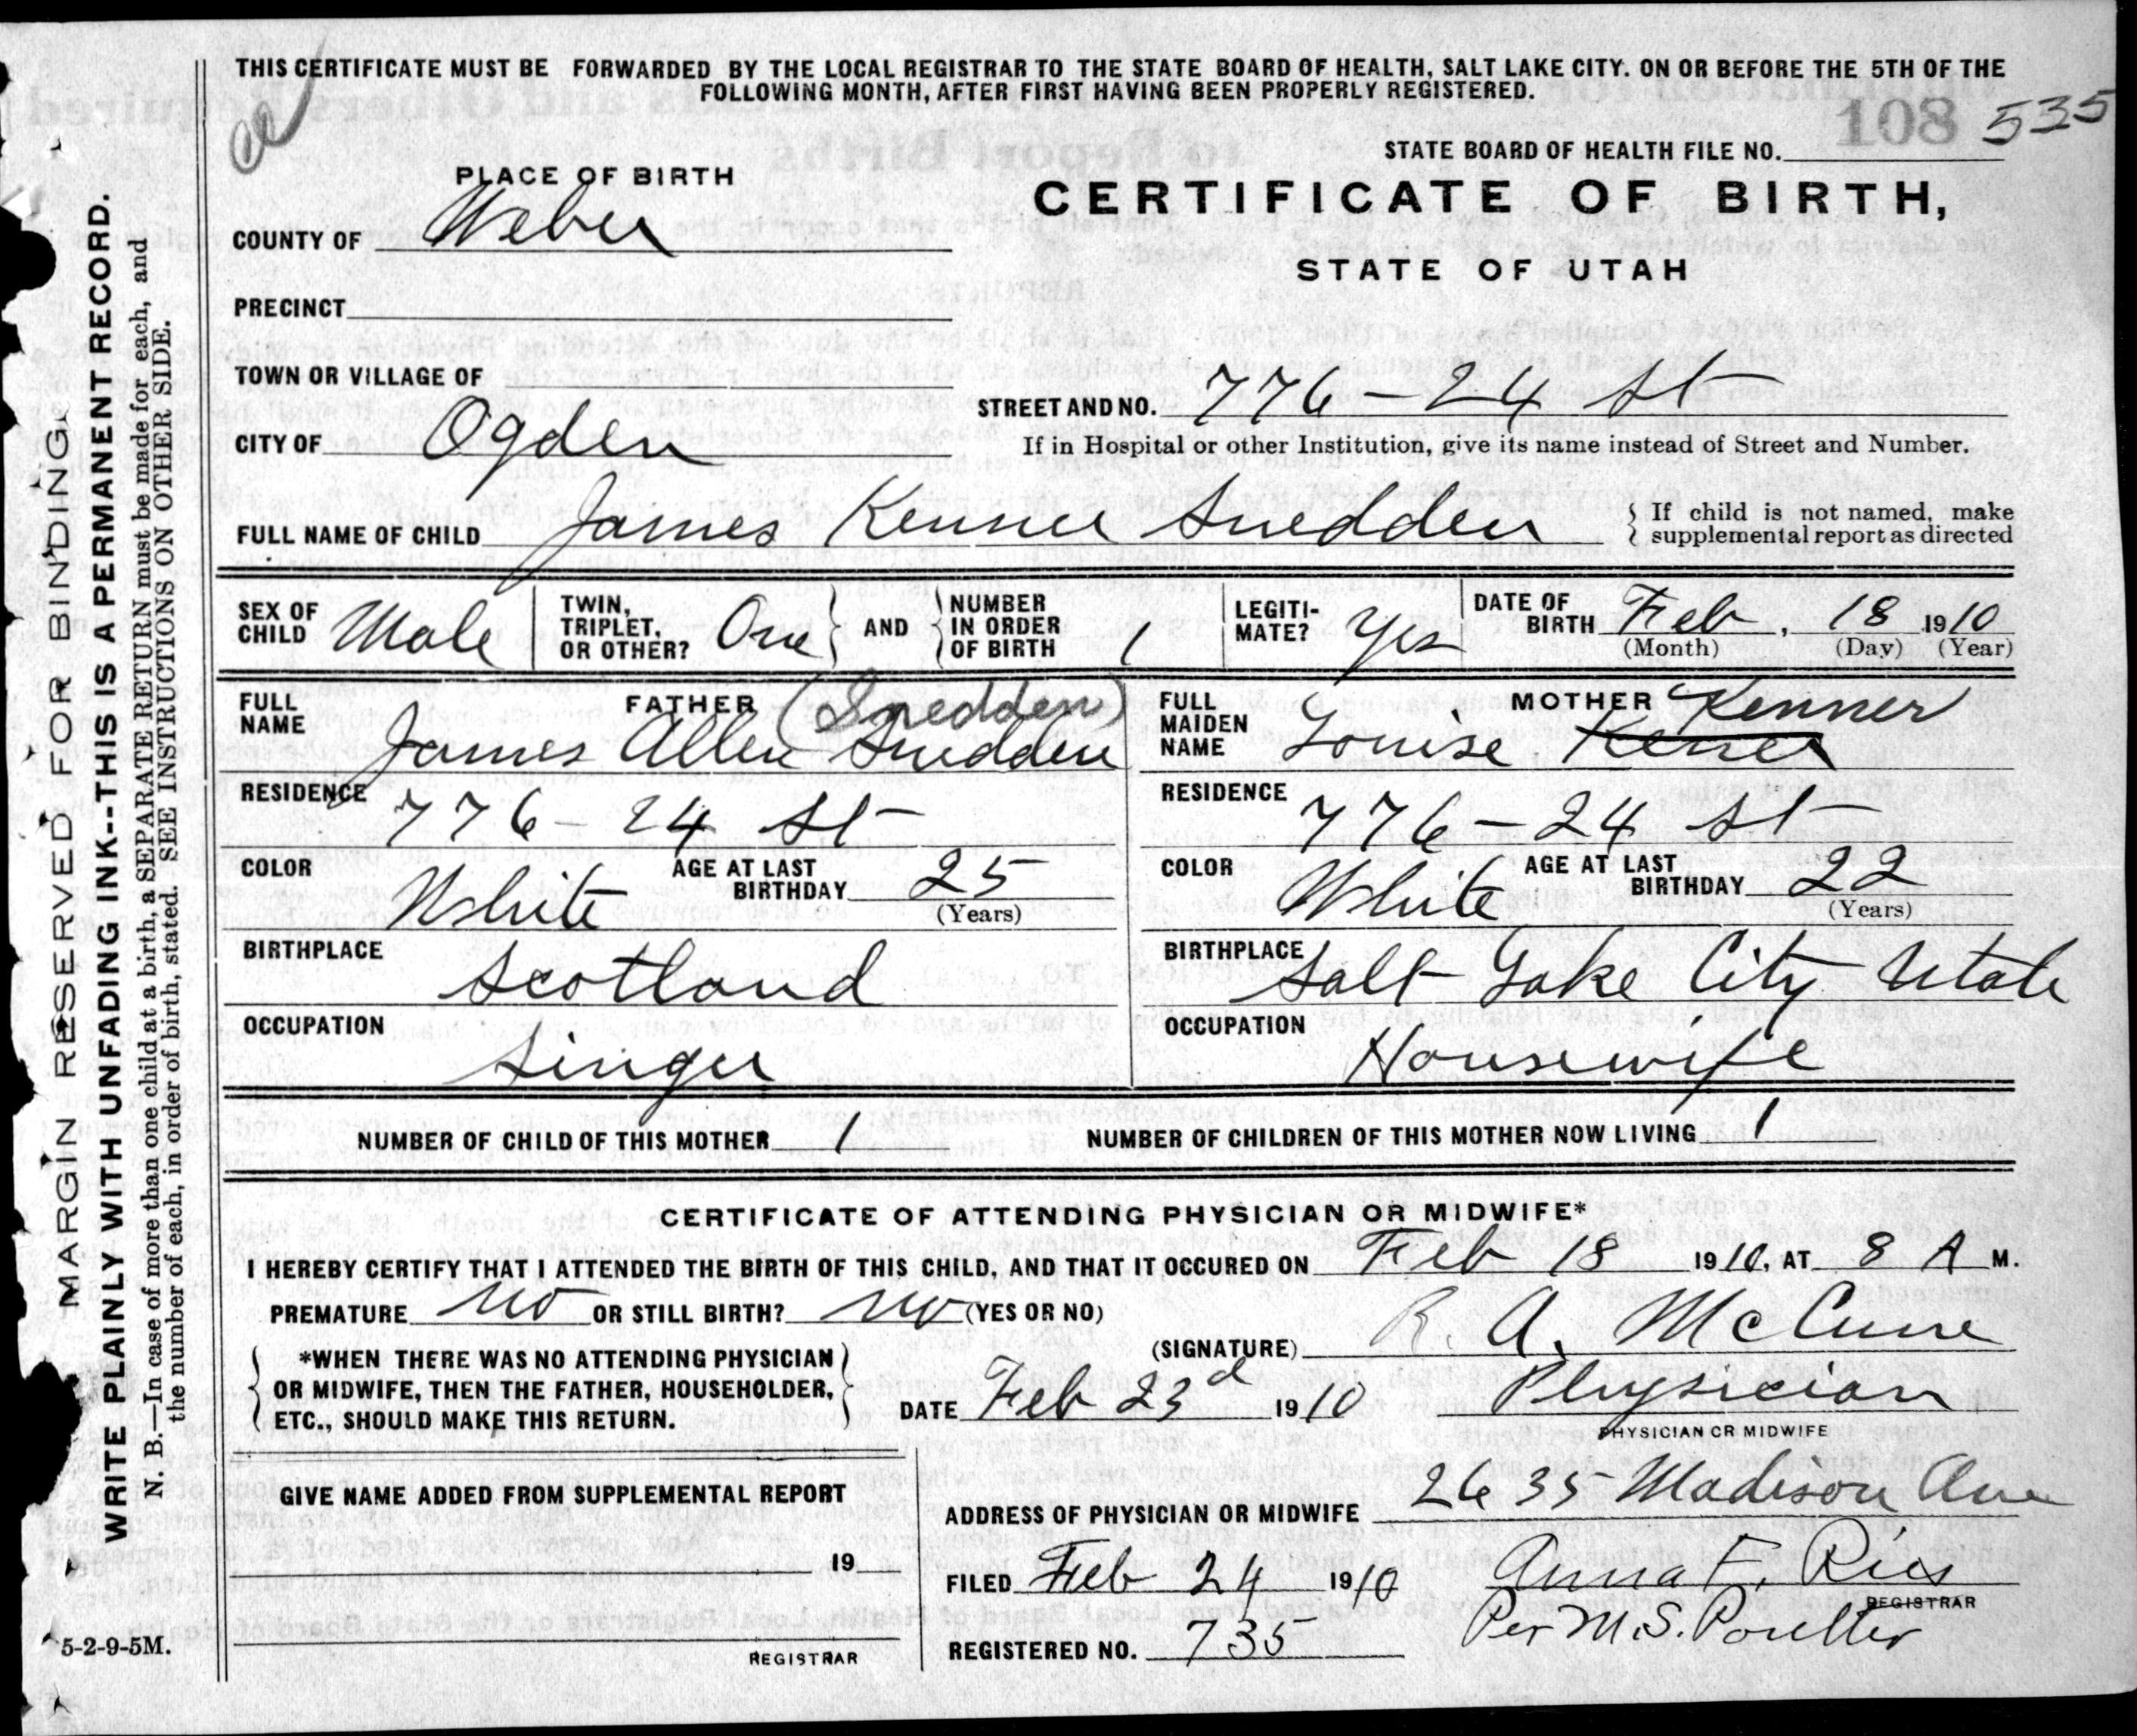 THIS CERTIFICATE MUST BE FORWARDED BY THE LOCAL REGISTRAR TO THE STATE BOARD OF HEALTH, SALT LAKE CITY. ON OR BEFORE THE 5TH OF THE
FOLLOWING MONTH, AFTER FIRST HAVING BEEN PROPERLY REGISTERED.
108 535
STATE BOARD OF HEALTH FILE NO.
PLACE OF BIRTH
CERTIFICATE OF BIRTH,
STATE OF UTAH
COUNTY OF Weber
PRECINCT
TOWN OR VILLAGE OF
STREET AND NO. 776 - 24 St
CITY OF Ogden
If in Hospital or other Institution, give its name instead of Street and Number.
FULL NAME OF CHILD James Kenner Snedden
{ If child is not named, make
supplemental report as directed
SEX OF CHILD Male
TWIN, TRIPLET, OR OTHER? One } AND { NUMBER IN ORDER OF BIRTH 1
LEGITIMATE? Yes
DATE OF BIRTH Feb, 18 1910
(Month) (Day) (Year)
FATHER (Snedden)
FULL NAME James Allen Snedden
MOTHER Kenner
FULL MAIDEN NAME Louise Kener
RESIDENCE 776 - 24 St
RESIDENCE 776 - 24 St
COLOR White AGE AT LAST BIRTHDAY 25 (Years)
COLOR White AGE AT LAST BIRTHDAY 22 (Years)
BIRTHPLACE Scotland
BIRTHPLACE Salt Lake City Utah
OCCUPATION Singer
OCCUPATION Housewife
NUMBER OF CHILD OF THIS MOTHER 1
NUMBER OF CHILDREN OF THIS MOTHER NOW LIVING 1
CERTIFICATE OF ATTENDING PHYSICIAN OR MIDWIFE*
I HEREBY CERTIFY THAT I ATTENDED THE BIRTH OF THIS CHILD, AND THAT IT OCCURED ON Feb 18 1910, AT 8 A M.
PREMATURE No OR STILL BIRTH? No (YES OR NO)
(SIGNATURE) R. A. McCune
*WHEN THERE WAS NO ATTENDING PHYSICIAN
OR MIDWIFE, THEN THE FATHER, HOUSEHOLDER,
ETC., SHOULD MAKE THIS RETURN.
DATE Feb 23d 1910 Physician
PHYSICIAN OR MIDWIFE
GIVE NAME ADDED FROM SUPPLEMENTAL REPORT
19
REGISTRAR
ADDRESS OF PHYSICIAN OR MIDWIFE 2635 Madison Ave
FILED Feb 24 1910 Anna F. Ries
REGISTRAR
Per M.S. Poulter
REGISTERED NO. 735
5-2-9-5M.
MARGIN RESERVED FOR BINDING,
WRITE PLAINLY WITH UNFADING INK--THIS IS A PERMANENT RECORD.
N. B.—In case of more than one child at a birth, a SEPARATE RETURN must be made for each, and
the number of each, in order of birth, stated. SEE INSTRUCTIONS ON OTHER SIDE.